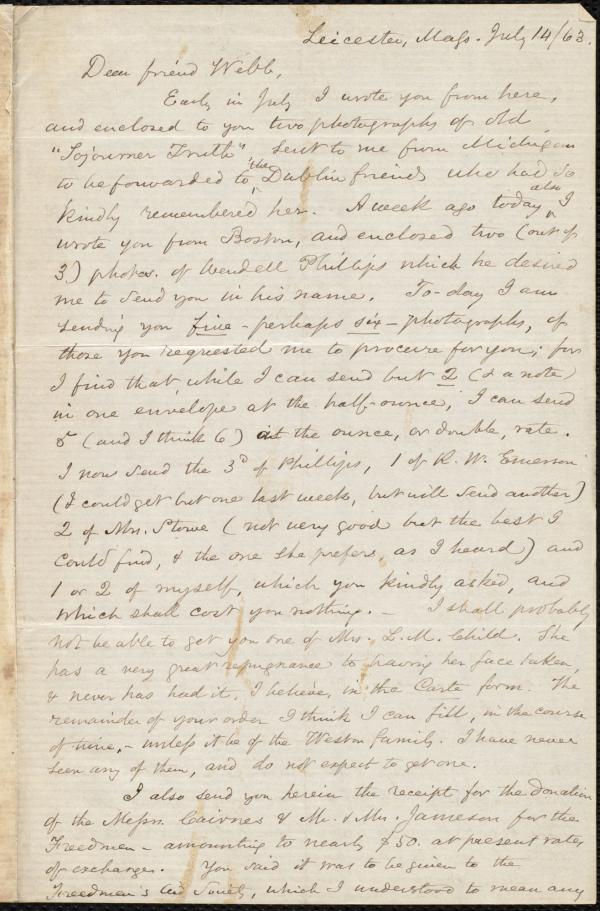 Leicester, Mass. July 14/63.
Dear friend Webb,
Early in July I wrote you from here,
and enclosed to you two photographs of old
"Sojourner Truth" sent to me from Michigan
to be forwarded to the Dublin friends who had so
kindly remembered her. A week ago today also I
wrote you from Boston, and enclosed two (out of
3) photos. of Wendell Phillips which he desired
me to send you in his name. To-day I am
sending you five - perhaps six - photographs, of
those you requested me to procure for you; for
I find that, while I can send but 2 (& a note)
in one envelope at the half-ounce, I can send
5 (and I think 6) at the ounce, or double, rate.
I now send the 3d of Phillips, 1 of R. W. Emerson
(I could get but one last week, but will send another)
2 of Mrs. Stowe (not very good but the best I
could find, & the one she prefers, as I heard) and
1 or 2 of myself, which you kindly asked, and
which shall cost you nothing. - I shall probably
not be able to get you one of Mrs. L. M. Child. She
has a very great repugnance to having her face taken,
& never has had it, I believe, in the Carte form. The
remainder of your order I think I can fill, in the course
of time, - unless it be of the Weston family. I have never
seen any of them, and do not expect to get one.
I also send you herein the receipt for the donation
of the Messrs. Cairnes & Mr. & Mrs. Jameson for the
Freedmen - amounting to nearly $50. at present rates
of exchange. You said it was to be given to the
Freedmen's Aid Society, which I understood to mean any